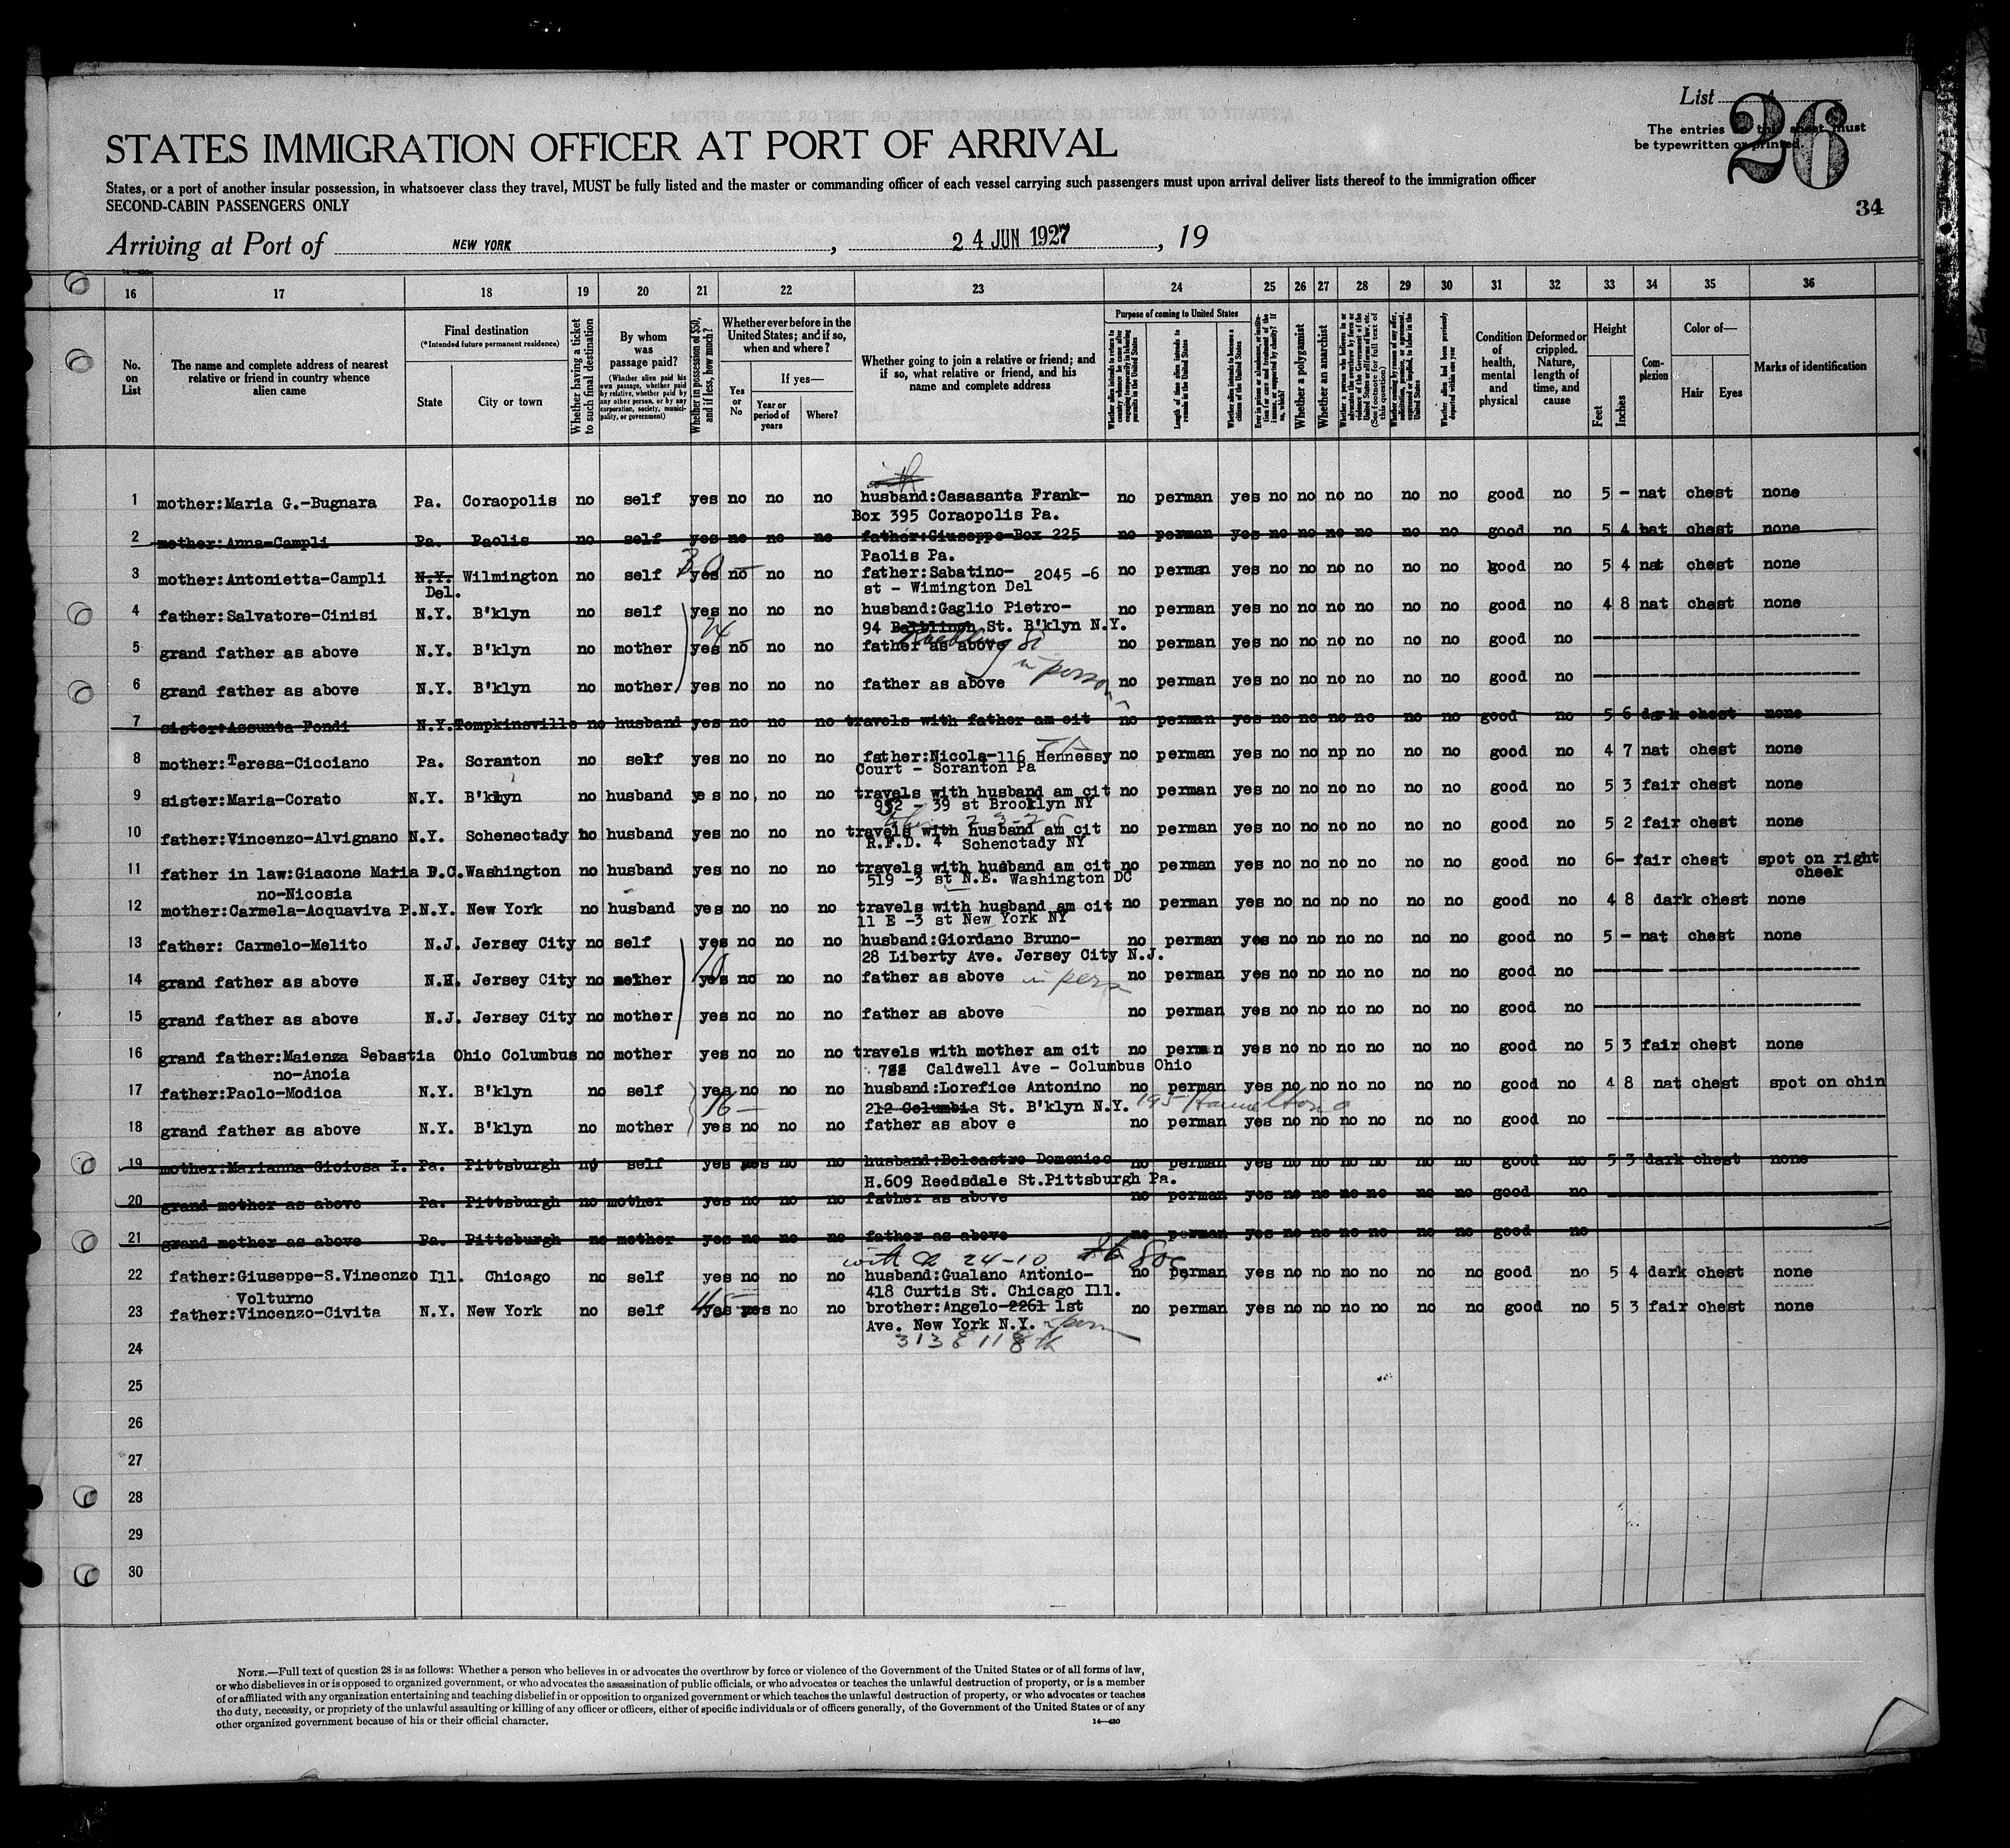 List
26
The entries on this sheet must
be typewritten or printed.
34
STATES IMMIGRATION OFFICER AT PORT OF ARRIVAL
States, or a port of another insular possession, in whatsoever class they travel, MUST be fully listed and the master or commanding officer of each vessel carrying such passengers must upon arrival deliver lists thereof to the immigration officer
SECOND-CABIN PASSENGERS ONLY
Arriving at Port of NEW YORK , 24 JUN 1927 , 19
16 17 18 19 20 21 22 23 24 25 26 27 28 29 30 31 32 33 34 35 36
No. on List
The name and complete address of nearest relative or friend in country whence alien came
Final destination
(*Intended future permanent residence)
State
City or town
Whether having a ticket to such final destination
By whom was passage paid?
(Whether alien paid his own passage, whether paid by relative, whether paid by any other person, or by any corporation, society, municipality, or government)
Whether in possession of $50, and if less, how much?
Whether ever before in the United States; and if so, when and where?
Yes or No
If yes—
Year or period of years
Where?
Whether going to join a relative or friend; and if so, what relative or friend, and his name and complete address
Purpose of coming to United States
Length of time alien intends to remain in the United States
Whether alien intends to become a citizen of the United States
Whether a polygamist
Whether an anarchist
Whether alien had been previously deported within one year
Condition of health, mental and physical
Deformed or crippled. Nature, length of time, and cause
Height
Feet
Inches
Complexion
Color of—
Hair
Eyes
Marks of identification
1 mother:Maria G.-Bugnara Pa. Coraopolis no self yes no no no husband:Casasanta Frank- no perman yes no no no no no no good no 5 - nat chest none
Box 395 Coraopolis Pa.
2 mother:Anna-Campli Pa. Paolis no self yes no no no father:Giuseppe-Box 225 no perman yes no no no no no no good no 5 4 nat chest none
Paolis Pa.
3 mother:Antonietta-Campli N.Y. Wilmington no self yes no no no father:Sabatino- 2045 -6 no perman yes no no no no no no good no 5 4 nat chest none
Del. 30 st - Wimington Del
4 father:Salvatore-Cinisi N.Y. B'klyn no self yes no no no husband:Gaglio Pietro- no perman yes no no no no no no good no 4 8 nat chest none
94 St. B'klyn N.Y.
5 grand father as above N.Y. B'klyn no mother yes no no no father as above no perman yes no no no no no no good no
in person
6 grand father as above N.Y. B'klyn no mother yes no no no father as above no perman yes no no no no no no good no
7 sister:Assunta-Fondi N.Y. Tompkinsville no husband yes no no no travels with father am cit no perman yes no no no no no no good no 5 6 dark chest none
8 mother:Teresa-Cicciano Pa. Scranton no self yes no no no father:Nicola-116 Hennessy no perman yes no no np no no no good no 4 7 nat chest none
Court - Scranton Pa
9 sister:Maria-Corato N.Y. B'klyn no husband yes no no no travels with husband am cit no perman yes no no no no no no good no 5 3 fair chest none
952 - 39 st Brooklyn NY
10 father:Vincenzo-Alvignano N.Y. Schenectady no husband yes no no no travels with husband am cit no perman yes no no no no no no good no 5 2 fair chest none
R.F.D. 4 Schenctady NY
11 father in law:Giacone Maria D.C. Washington no husband yes no no no travels with husband am cit no perman yes no no no no no no good no 6- fair chest spot on right
no-Nicosia 519 -3 st N.E. Washington DC cheek
12 mother:Carmela-Acquaviva P. N.Y. New York no husband yes no no no travels with husband am cit no perman yes no no no no no no good no 4 8 dark chest none
11 E -3 st New York NY
13 father: Carmelo-Melito N.J. Jersey City no self yes no no no husband:Giordano Bruno- no perman yes no no no no no no good no 5 - nat chest none
28 Liberty Ave. Jersey City N.J.
14 grand father as above N.H. Jersey City no mother yes no no no father as above no perman yes no no no no no no good no
15 grand father as above N.J. Jersey City no mother yes no no no father as above no perman yes no no no no no no good no
16 grand father:Maienza Sebastia Ohio Columbus no mother yes no no no travels with mother am cit no perman yes no no no no no no good no 5 3 fair chest none
no-Anoia Caldwell Ave - Columbus Ohio
17 father:Paolo-Modica N.Y. B'klyn no self yes no no no husband:Lorefice Antonino no perman yes no no no no no no good no 4 8 nat chest spot on chin
16 — 212 Columbia St. B'klyn N.Y. 195 Hamelton
18 grand father as above N.Y. B'klyn no mother yes no no no father as abov e no perman yes no no no no no no good no
19 mother:Marianna Gioiosa I. Pa. Pittsburgh no self yes yes no no husband:Belcastro Domenico no perman yes no no no no no no good no 5 3 dark chest none
H.609 Reedsdale St.Pittsburgh Pa.
20 grand mother as above Pa. Pittsburgh no mother yes no no no father as above no perman yes no no no no no no good no
21 grand mother as above Pa. Pittsburgh no mother yes no no no father as above no perman yes no no no no no no good no
24-10
22 father:Giuseppe-S.Vinecnzo Ill. Chicago no self yes no no no husband:Gualano Antonio- no perman yes no no no no no no good no 5 4 dark chest none
Volturno 418 Curtis St. Chicago Ill.
23 father:Vincenzo-Civita N.Y. New York no self yes yes no no brother:Angelo-2261 1st no perman yes no no no no no no good no 5 3 fair chest none
Ave. New York N.Y.
313 E 118 th
24
25
26
27
28
29
30
NOTE.—Full text of question 28 is as follows: Whether a person who believes in or advocates the overthrow by force or violence of the Government of the United States or of all forms of law,
or who disbelieves in or is opposed to organized government, or who advocates the assassination of public officials, or who advocates or teaches the unlawful destruction of property, or is a member
of or affiliated with any organization entertaining and teaching disbelief in or opposition to organized government or which teaches the unlawful destruction of property, or who advocates or teaches
the duty, necessity, or propriety of the unlawful assaulting or killing of any officer or officers, either of specific individuals or of officers generally, of the Government of the United States or of any
other organized government because of his or their official character.
14—430